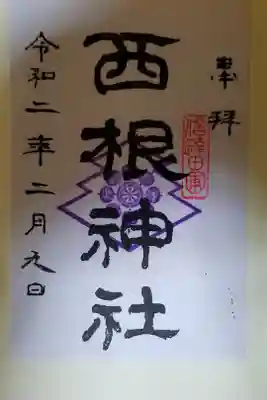 奉拝
西根神社
令和二年二月九日